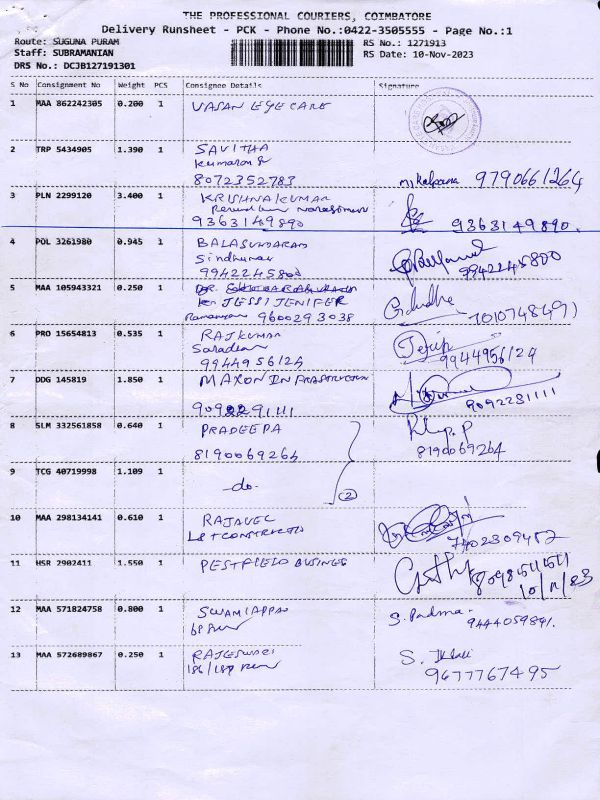 THE PROFESSIONAL COURIERS, COIMBATORE
Delivery Runsheet - PCK - Phone No.:0422-3505555 - Page No.:1
Route: SUGUNA PURAM
RS No.: 1271913
Staff: SUBRAMANIAN
RS Date: 10-Nov-2023
DRS No.: DCJB127191301
S No Consignment No Weight PCS Consignee Details Signature
1 MAA 862242305 0.200 1 VASAN EYE CARE
2 TRP 5434905 1.390 1 SAVITHA
Kumaran
8072352783 M. Kalpana 9790661264
3 PLN 2299120 3.400 1 KRISHNAKUMAR
9363149890 9363149890.
4 POL 3261980 0.945 1 BALASUNDARAM
Sindhunar
9942245800 9942245800
5 MAA 105943321 0.250 1 DR.
JESSI JENIFER
9600293038
6 PRO 15654813 0.535 1 RAJKUMAR
9944956124 9944956124
7 DDG 145819 1.850 1 MAXON INFRASTRUCTURE
9092281111
8 SLM 332561858 0.640 1 PRADEEPA
8190069264 8190069264
9 TCG 40719998 1.109 1 -do-
2
10 MAA 298134141 0.610 1 RAJAVEL
L&T CONSTRUCTION 7402309482
11 HSR 2902411 1.550 1 PESTFIELD BUSINES
12 MAA 571824758 0.800 1 SWAMIAPPAN S. Padma.
13 MAA 572689867 0.250 1 RAJESWARI
9677767495